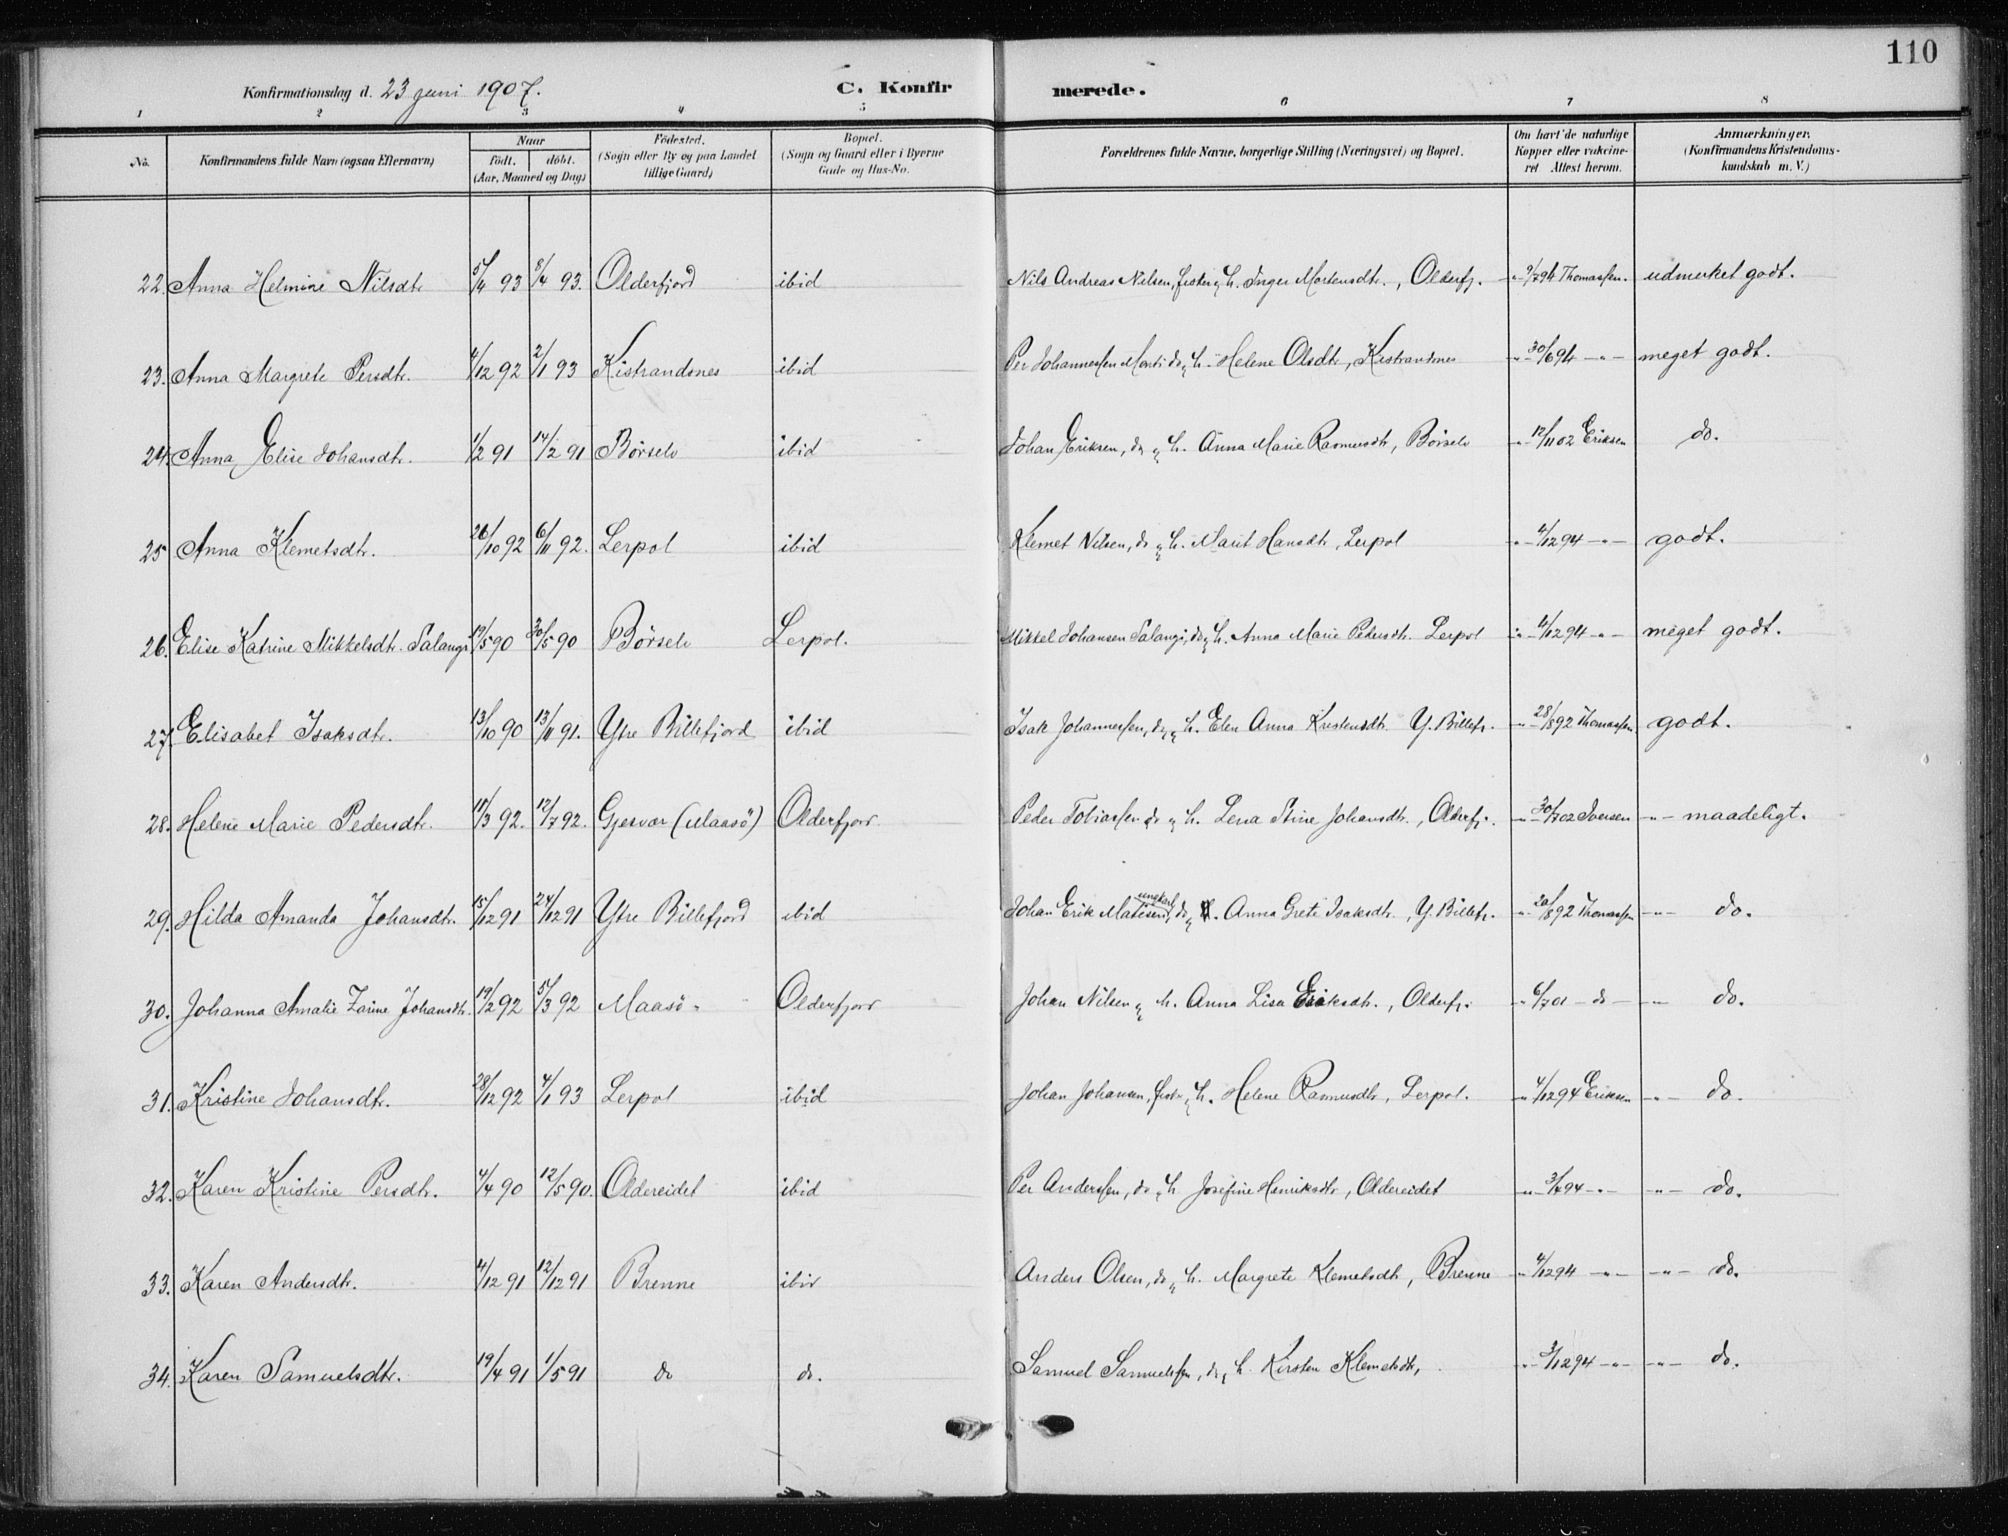 110
Konfirmationsdag d. 23 juni 1907. C. Konfirmerede.
1 2 3 4 5 6 7 8
No. Konfirmandens fulde Navn (ogsaa Efternavn) Naar født. døbt. (Aar, Maaned og Dag) Fødested. (Sogn eller By og paa Landet tillige Gaard) Bopæl. (Sogn og Gaard eller i Byerne Gade og Hus-No. Forældrenes fulde Navne, borgerlige Stilling (Næringsvei) og Bopæl. Om havt de naturlige Kopper eller vakcineret Attest herom. Anmærkninger. (Konfirmandens Kristendomskundskab m. V.)
22. Anna Helmine Nilsdtr 5/4 93 8/4 93. Olderfjord ibid Nils Andreas Nilsen, fisker & h. Inger Mortensdtr., Olderfj. -"- 9/7 94 Thomassen. udmerket godt.
23. Anna Margrete Persdtr. 4/12 92 2/1 93 Kistrandsnes ibid Per Johannessen do & h. Helene Olsdtr, Kistrandsnes -"- 30/6 94 -"- meget godt.
24. Anna Elise Johansdtr. 1/2 91 14/2 91 Børselv ibid Johan Eriksen, do & h. Anna Marie Rasmusdtr, Børselv -"- 12/11 02 Eriksen do.
25 Anna Klemetsdtr. 26/10 92 6/11 92. Lerpol ibid Klemet Nilsen, do & h. Marit Hansdtr, Lerpol -"- 4/12 94 -"- godt.
26. Elise Katrine Mikkelsdtr. Salangi 19/5 90 30/5 90 Børselv Lerpol. Mikkel Johansen Salangi, do & h. Anna Marie Pedersdtr. Lerpol -"- 4/12 94 -"- meget godt.
27. Elisabet Isaksdtr. 13/10 90 13/11 91. Ytre Billefjord ibid Isak Johannessen, do & h. Elen Anna Kristensdtr. Y. Billefj. -"- 28/8 92 Thomassen godt.
28. Helene Marie Pedersdtr. 18/3 92. 12/7 92. Gjesvær (Maasø) Olderfjord Peder Tobiassen do & h. Lena Stine Johansdtr., Olderfj. -"- 30/7 02 Iversen -"- maadeligt.
29. Hilda Amanda Johansdtr. 15/12 91 24/12 91 Ytre Billefjord ibid Johan Erik Matisen, ungkarl, do & Anna Grete Isaksdtr., Y. Billefj. -"- 28/8 92 Thomassen -"- do.
30. Johanna Amalie Zarine Johansdtr. 19/2 92 5/3 92 Maasø Olderfjord Johan Nilsen & h. Anna Lisa Eriksdtr., Olderfj. -"- 6/7 01 - do - -"- do.
31. Kristine Johansdtr. 28/12 92 4/1 93 Lerpol ibid Johan Johansen, fisker & h. Helene Rasmusdtr, Lerpol. -"- 4/12 94 Eriksen -"- do.
32. Karen Kristine Persdtr. 4/4 90 12/5 90. Oldereidet ibid Per Anderssen, do & h. Josefine Henriksdtr, Oldereidet -"- 3/7 94 -"- -"- do.
33. Karen Andersdtr. 4/12 91 12/12 91 Brenne ibid Anders Olsen, do & h. Margrete Klemetsdtr, Brenne -"- 4/12 94 -"- -"- do.
34. Karen Samuelsdtr. 19/4 91 1/5 91 do do. Samuel Samuelssen, do & h. Kirsten Klemetsdtr, -"- 3/12 94 -"- -"- do.